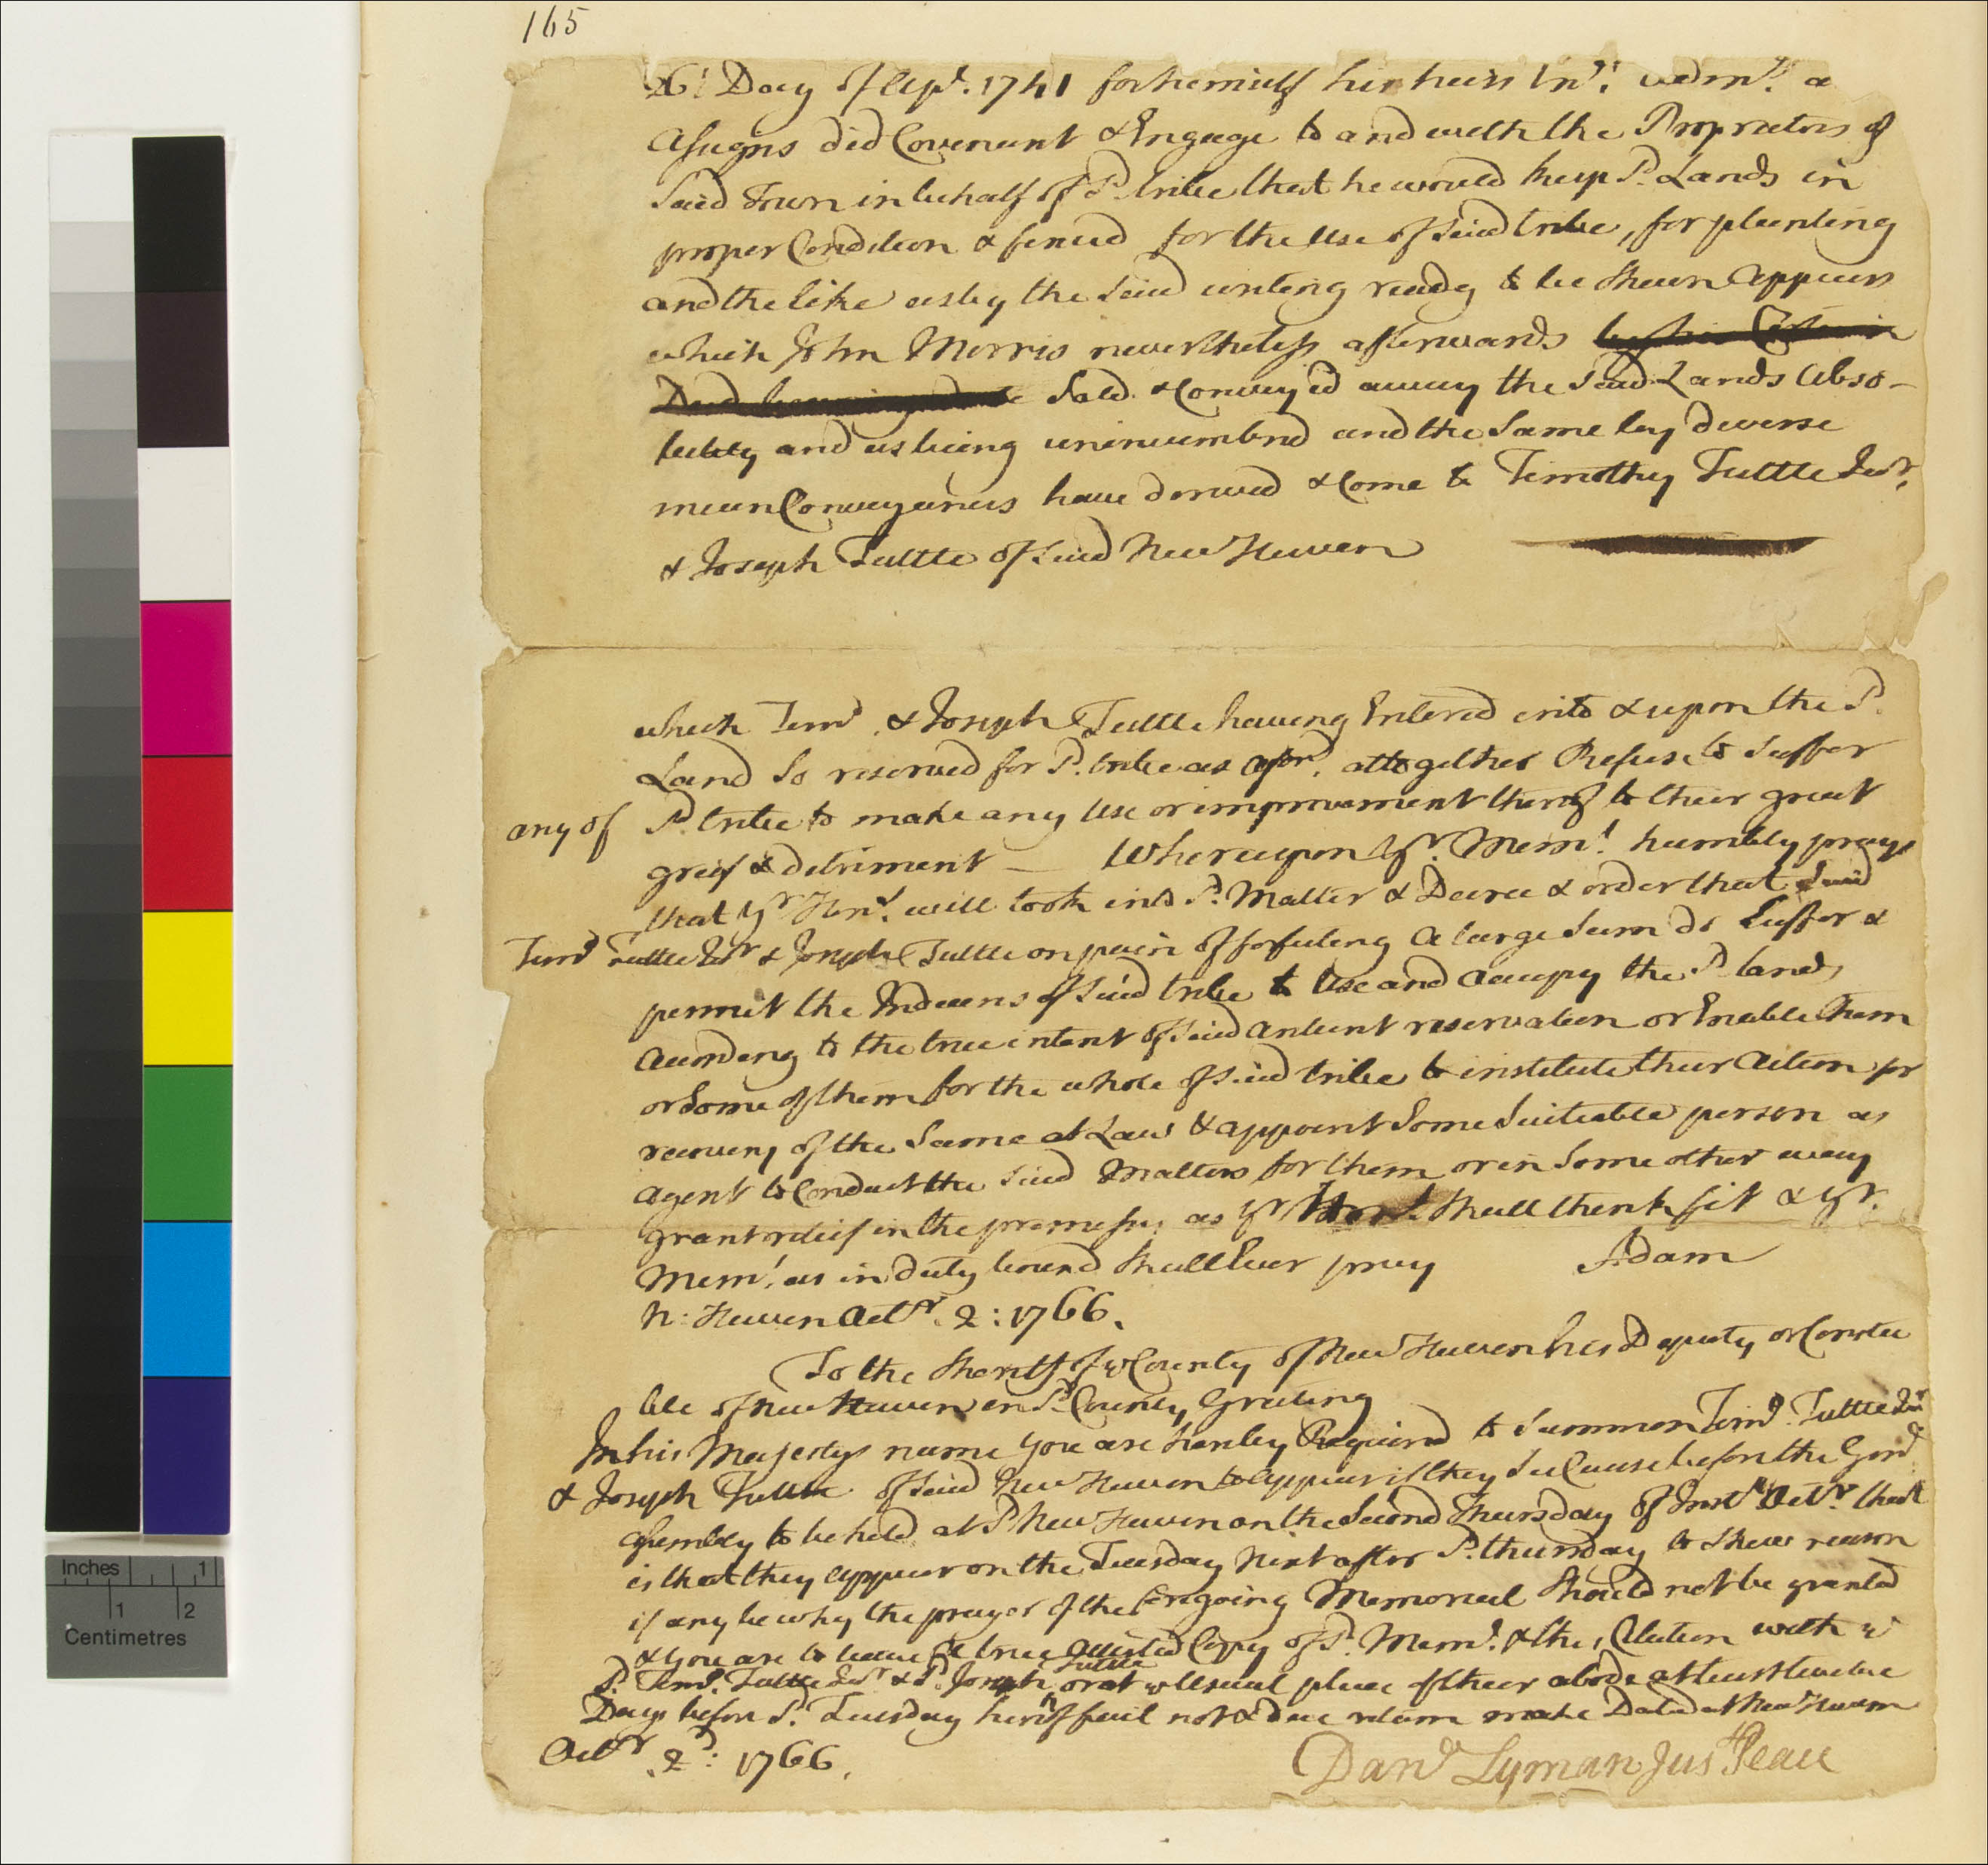 165
Day of Apl. 1741 for himself his heirs Exrs. adminrs. &
Assigns did Covenant & Engage to and with the Proprietors of
Said Town in behalf of Sd. tribe that he would keep Sd. Lands in
proper Condition & fenced for the Use of Said tribe, for planting
and the like as by the Said writing ready to be Shewn Appears
which John Morris nevertheless afterwards
Deed Sold & Convey'd away the Said Lands Abso-
lutely and as being unincumbred and the Same by diverse
mean Conveyances have derived & Come to Timothy Tuttle Junr.
& Joseph Tuttle of Said New Haven
which Timo. & Joseph Tuttle having Entered into & upon the Sd.
Land So reserved for Sd. tribe as aforesd. altogether Refuse to Suffer
any of Sd. tribe to make any Use or improvement thereof to their great
grief & detriment — Whereupon Yr. Meml. humbly prays
that Yr Honrs. will look into Sd. Matter & Decree & order that Said
Timo Tuttle Junr & Joseph Tuttle on pain of forfeiting a large Sum do Suffer &
permit the Indians of Said tribe to Use and Occupy the Sd lands
According to the true intent of Said Antient reservation or Enable them
or Some of them for the whole of Said tribe to institute their Action for
recovery of the Same at Law & appoint Some Suitable person as
Agent to Conduct the Said Matters for them or in Some other way
grant relief in the premises as Yr Honrs. Shall think fit & Yr.
Meml. as in duty bound Shall Ever pray Adam
N: Haven Octr. 2: 1766.
To the Sheriff of ye County of New Haven his Deputy or Consta
ble of New Haven in Sd. County Greeting
In his Majestys name You are hereby Required to Summon Timo. Tuttle Junr
& Joseph Tuttle of Said New Haven to appear if they See Cause before the Genl
Assembly to be held at Sd New Haven on the Second Thursday of Inst. Octr. that
is that they appear on the Tuesday Next after Sd. thursday to Shew reason
if any be why the prayer of the foregoing Memorial Should not be granted
& You are to leave a true Attested Copy of Sd. Meml. & the Citation with ye
Sd. Timo. Tuttle Junr & Sd. Joseph Tuttle or at ye Usual place of their abode at least twelve
Days before Sd. Tuesday hereof fail not & due return make Dated at New Haven
Octr. 2d: 1766.
Danll Lyman Just Peace